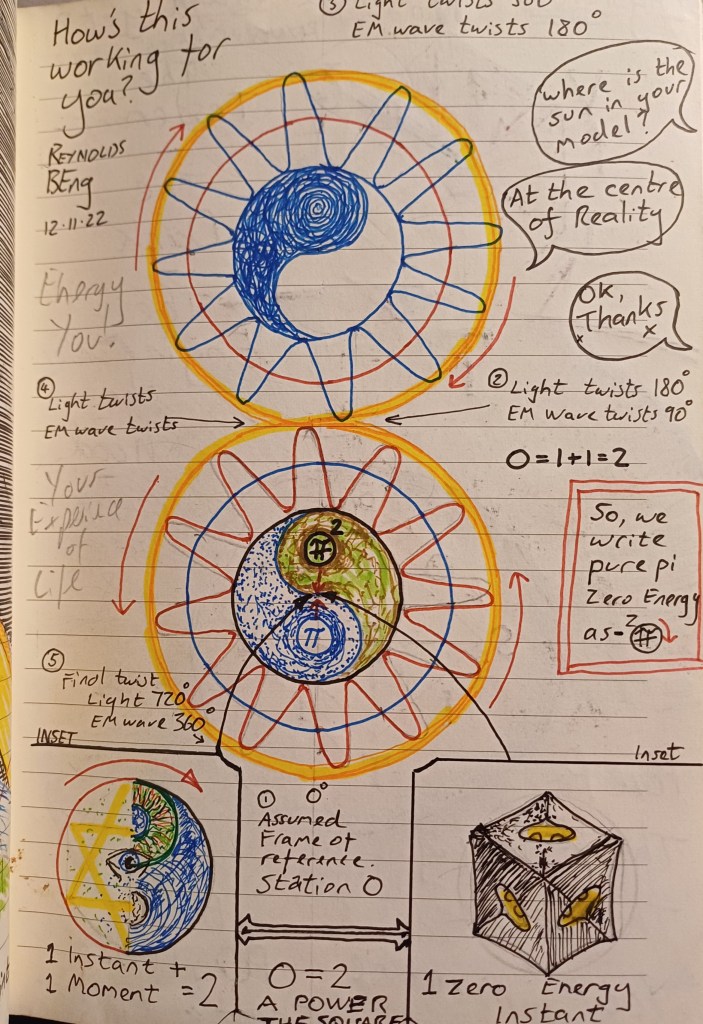 How's this
working for
you?
REYNOLDS
BEng
12.11.22
Energy
You!
③ Light twists 360°
EM wave twists 180°
Where is the
sun in your
model?
At the centre
of Reality
OK,
Thanks
x x
④
Light twists
EM wave twists
② Light twists 180°
EM wave twists 90°
0=1+1=2
Your
Experience
of
Life
So, we
write
pure pi
Zero Energy
as-
2
2
π
⑤
Final twist
Light 720°
EM wave 360°
INSET
Inset
① 0°
Assumed
Frame of
reference.
Station 0
1 instant +
1 Moment = 2
0=2
A POWER
THE SQUARE
1 Zero Energy
Instant